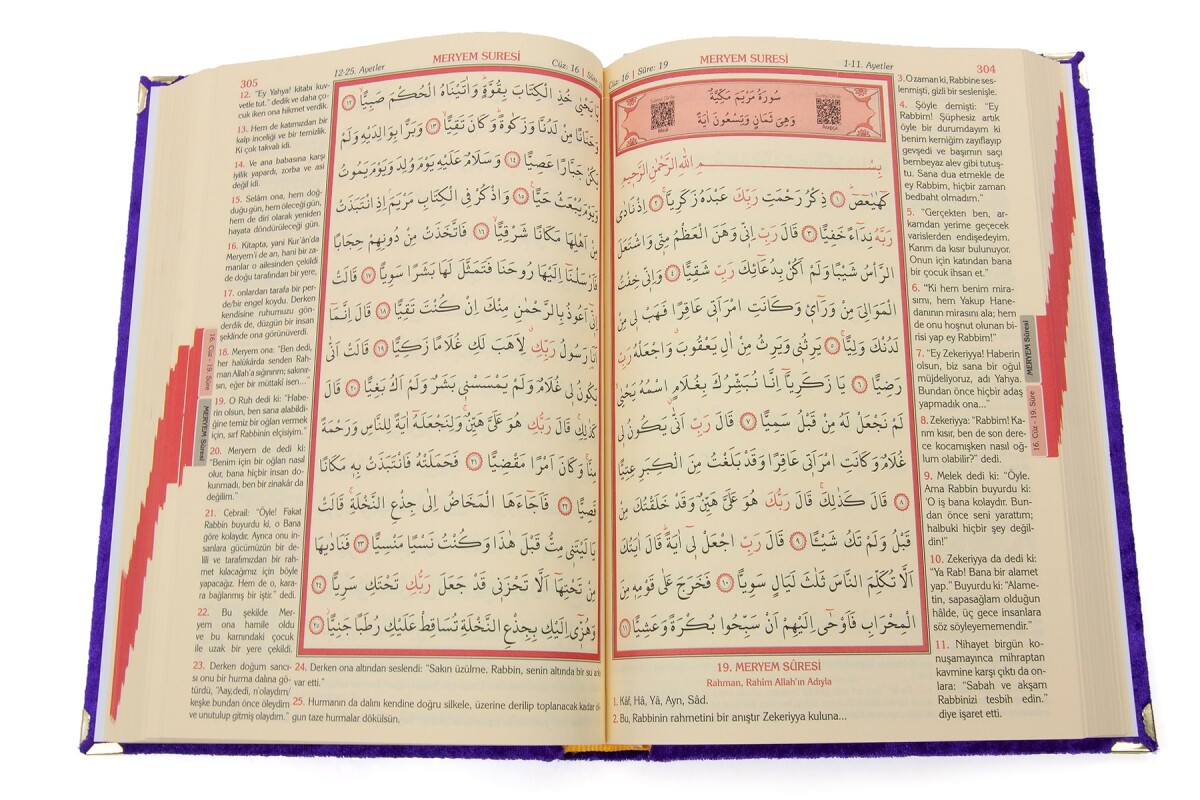 MERYEM SURESİ
Cüz: 16 | Sûre: 19
1-11. Ayetler
304
سُورَةُ مَرْيَمَ مَكِّيَّةٌ
وَهِىَ ثَمَانٍ وَتِسْعُونَ اٰيَةً
بِسْــــــمِ اللّٰهِ الرَّحْمٰنِ الرَّحِيمِ
كٓهٰيٰعٓصٓ ﴿١﴾ ذِكْرُ رَحْمَتِ رَبِّكَ عَبْدَهُ زَكَرِيَّا ﴿٢﴾ اِذْ نَادٰى
رَبَّهُ نِدَٓاءً خَفِيًّا ﴿٣﴾ قَالَ رَبِّ اِنّٖى وَهَنَ الْعَظْمُ مِنّٖى وَاشْتَعَلَ
الرَّأْسُ شَيْبًا وَلَمْ اَكُنْ بِدُعَٓائِكَ رَبِّ شَقِيًّا ﴿٤﴾ وَاِنّٖى خِفْتُ
الْمَوَالِىَ مِنْ وَرَٓاءٖى وَكَانَتِ امْرَاَتٖى عَاقِرًا فَهَبْ لٖى مِنْ
لَدُنْكَ وَلِيًّا ﴿٥﴾ يَرِثُنٖى وَيَرِثُ مِنْ اٰلِ يَعْقُوبَ وَاجْعَلْهُ رَبِّ
رَضِيًّا ﴿٦﴾ يَا زَكَرِيَّٓا اِنَّا نُبَشِّرُكَ بِغُلَامٍ اسْمُهُ يَحْيٰى
لَمْ نَجْعَلْ لَهُ مِنْ قَبْلُ سَمِيًّا ﴿٧﴾ قَالَ رَبِّ اَنّٰى يَكُونُ لٖى
غُلَامٌ وَكَانَتِ امْرَاَتٖى عَاقِرًا وَقَدْ بَلَغْتُ مِنَ الْكِبَرِ عِتِيًّا
﴿٨﴾ قَالَ كَذٰلِكَ قَالَ رَبُّكَ هُوَ عَلَىَّ هَيِّنٌ وَقَدْ خَلَقْتُكَ مِنْ
قَبْلُ وَلَمْ تَكُ شَيْـًٔا ﴿٩﴾ قَالَ رَبِّ اجْعَلْ لٖٓى اٰيَةً قَالَ اٰيَتُكَ
اَلَّا تُكَلِّمَ النَّاسَ ثَلٰثَ لَيَالٍ سَوِيًّا ﴿١٠﴾ فَخَرَجَ عَلٰى قَوْمِهٖ مِنَ
الْمِحْرَابِ فَاَوْحٰٓى اِلَيْهِمْ اَنْ سَبِّحُوا بُكْرَةً وَعَشِيًّا ﴿١١﴾
19. MERYEM SÛRESİ
Rahman, Rahîm Allah'ın Adıyla
1. Kâf, Hâ, Yâ, Ayn, Sâd.
2. Bu, Rabbinin rahmetini bir anıştır Zekeriyya kuluna...
3. O zaman ki, Rabbine ses-
lenmişti, gizli bir seslenişle.
4. Şöyle demişti: "Ey
Rabbim! Şüphesiz artık
öyle bir durumdayım ki
benim kemiğim zayıflayıp
gevşedi ve başımın saçı
bembeyaz alev gibi tutuş-
tu. Sana dua etmekle de
ey Rabbim, hiçbir zaman
bedbaht olmadım."
5. "Gerçekten ben, ar-
kamdan yerime geçecek
varislerden endişedeyim.
Karım da kısır bulunuyor.
Onun için katından bana
bir çocuk ihsan et."
6. "Ki hem benim mira-
sımı, hem Yakup Hane-
danının mirasını ala; hem
de onu hoşnut olunan bi-
risi yap ey Rabbim!"
7. "Ey Zekeriyya! Haberin
olsun, biz sana bir oğul
müjdeliyoruz, adı Yahya.
Bundan önce hiçbir adaş
yapmadık ona..."
8. Zekeriyya: "Rabbim! Ka-
rım kısır, ben de son dere-
ce kocamışken nasıl oğ-
lum olabilir?" dedi.
9. Melek dedi ki: "Öyle.
Ama Rabbin buyurdu ki:
'O iş bana kolaydır. Bun-
dan önce seni yarattım;
halbuki hiçbir şey değil-
din!"
10. Zekeriyya da dedi ki:
"Ya Rab! Bana bir alamet
yap." Buyurdu ki: "Alame-
tin, sapasağlam olduğun
hâlde, üç gece insanlara
söz söyleyememendir."
11. Nihayet birgün ko-
nuşamayınca mihraptan
kavmine karşı çıktı da on-
lara: "Sabah ve akşam
Rabbinizi tesbih edin."
diye işaret etti.
MERYEM Sûresi
16. Cüz - 19. Sûre
305
12-25. Ayetler
MERYEM SURESİ
Cüz: 16 | Sûre
يَا يَحْيٰى خُذِ الْكِتَابَ بِقُوَّةٍ وَاٰتَيْنَاهُ الْحُكْمَ صَبِيًّا ﴿١٢﴾
وَحَنَانًا مِنْ لَدُنَّا وَزَكٰوةً وَكَانَ تَقِيًّا ﴿١٣﴾ وَبَرًّا بِوَالِدَيْهِ وَلَمْ
يَكُنْ جَبَّارًا عَصِيًّا ﴿١٤﴾ وَسَلَامٌ عَلَيْهِ يَوْمَ وُلِدَ وَيَوْمَ يَمُوتُ
وَيَوْمَ يُبْعَثُ حَيًّا ﴿١٥﴾ وَاذْكُرْ فِى الْكِتَابِ مَرْيَمَ اِذِ انْتَبَذَتْ
مِنْ اَهْلِهَا مَكَانًا شَرْقِيًّا ﴿١٦﴾ فَاتَّخَذَتْ مِنْ دُونِهِمْ حِجَابًا
فَاَرْسَلْنَٓا اِلَيْهَا رُوحَنَا فَتَمَثَّلَ لَهَا بَشَرًا سَوِيًّا ﴿١٧﴾ قَالَتْ
اِنّٖٓى اَعُوذُ بِالرَّحْمٰنِ مِنْكَ اِنْ كُنْتَ تَقِيًّا ﴿١٨﴾ قَالَ اِنَّمَٓا
اَنَا رَسُولُ رَبِّكِ لِاَهَبَ لَكِ غُلَامًا زَكِيًّا ﴿١٩﴾ قَالَتْ اَنّٰى
يَكُونُ لٖى غُلَامٌ وَلَمْ يَمْسَسْنٖى بَشَرٌ وَلَمْ اَكُ بَغِيًّا ﴿٢٠﴾ قَالَ
كَذٰلِكِ قَالَ رَبُّكِ هُوَ عَلَىَّ هَيِّنٌ وَلِنَجْعَلَهُٓ اٰيَةً لِلنَّاسِ وَرَحْمَةً
مِنَّا وَكَانَ اَمْرًا مَقْضِيًّا ﴿٢١﴾ فَحَمَلَتْهُ فَانْتَبَذَتْ بِهٖ مَكَانًا
قَصِيًّا ﴿٢٢﴾ فَاَجَٓاءَهَا الْمَخَاضُ اِلٰى جِذْعِ النَّخْلَةِ قَالَتْ
يَا لَيْتَنٖى مِتُّ قَبْلَ هٰذَا وَكُنْتُ نَسْيًا مَنْسِيًّا ﴿٢٣﴾ فَنَادٰيهَا
مِنْ تَحْتِهَٓا اَلَّا تَحْزَنٖى قَدْ جَعَلَ رَبُّكِ تَحْتَكِ سَرِيًّا ﴿٢٤﴾
وَهُزّٖٓى اِلَيْكِ بِجِذْعِ النَّخْلَةِ تُسَاقِطْ عَلَيْكِ رُطَبًا جَنِيًّا ﴿٢٥﴾
12. "Ey Yahya! kitabı kuv-
vetle tut." dedik ve daha ço-
cuk iken ona hikmet verdik.
13. Hem de katımızdan bir
kalp inceliği ve bir temizlik.
Ki çok takvalı idi.
14. Ve ana babasına karşı
iyilik yapardı, zorba ve asi
değil idi.
15. Selâm ona, hem doğ-
duğu gün, hem öleceği gün,
hem de diri olarak yeniden
hayata döndürüleceği gün.
16. Kitapta, yani Kur'ân'da
Meryem'i de an, hani bir za-
manlar o ailesinden çekildi
de doğu tarafından bir yere,
17. onlardan tarafa bir per-
de/bir engel koydu. Derken
kendisine ruhumuzu gön-
derdik de, düzgün bir insan
şeklinde ona görünüverdi.
18. Meryem ona: "Ben dedi,
her halükârda senden Rah-
man Allah'a sığınırım; sakınır-
san, eğer bir müttakî isen..."
19. O Ruh dedi ki: "Habe-
rin olsun, ben sana alabildi-
ğine temiz bir oğlan vermek
için, sırf Rabbinin elçisiyim."
20. Meryem de dedi ki:
"Benim için bir oğlan nasıl
olur, bana hiçbir insan do-
kunmadı, ben bir zinakâr da
değilim."
21. Cebrail: "Öyle! Fakat
Rabbin buyurdu ki, o Bana
göre kolaydır. Ayrıca onu in-
sanlara gücümüzün bir de-
lili ve tarafımızdan bir rah-
met kılacağımız için böyle
yapacağız. Hem de o, kara-
ra bağlanmış bir iştir." dedi.
22. Bu şekilde Mer-
yem ona hamile oldu
ve bu karnındaki çocuk
ile uzak bir yere çekildi.
23. Derken doğum sancı-
sı onu bir hurma dalına gö-
türdü, "Aay,dedi, n'olaydım/
keşke bundan önce öleydim
ve unutulup gitmiş olaydım."
24. Derken ona altından seslendi: "Sakın üzülme. Rabbin, senin altında bir su arkı
var etti."
25. Hurmanın da dalını kendine doğru silkele, üzerine derilip toplanacak kadar
gun taze hurmalar dökülsün.
16. Cüz - 19. Sûre
MERYEM Sûresi